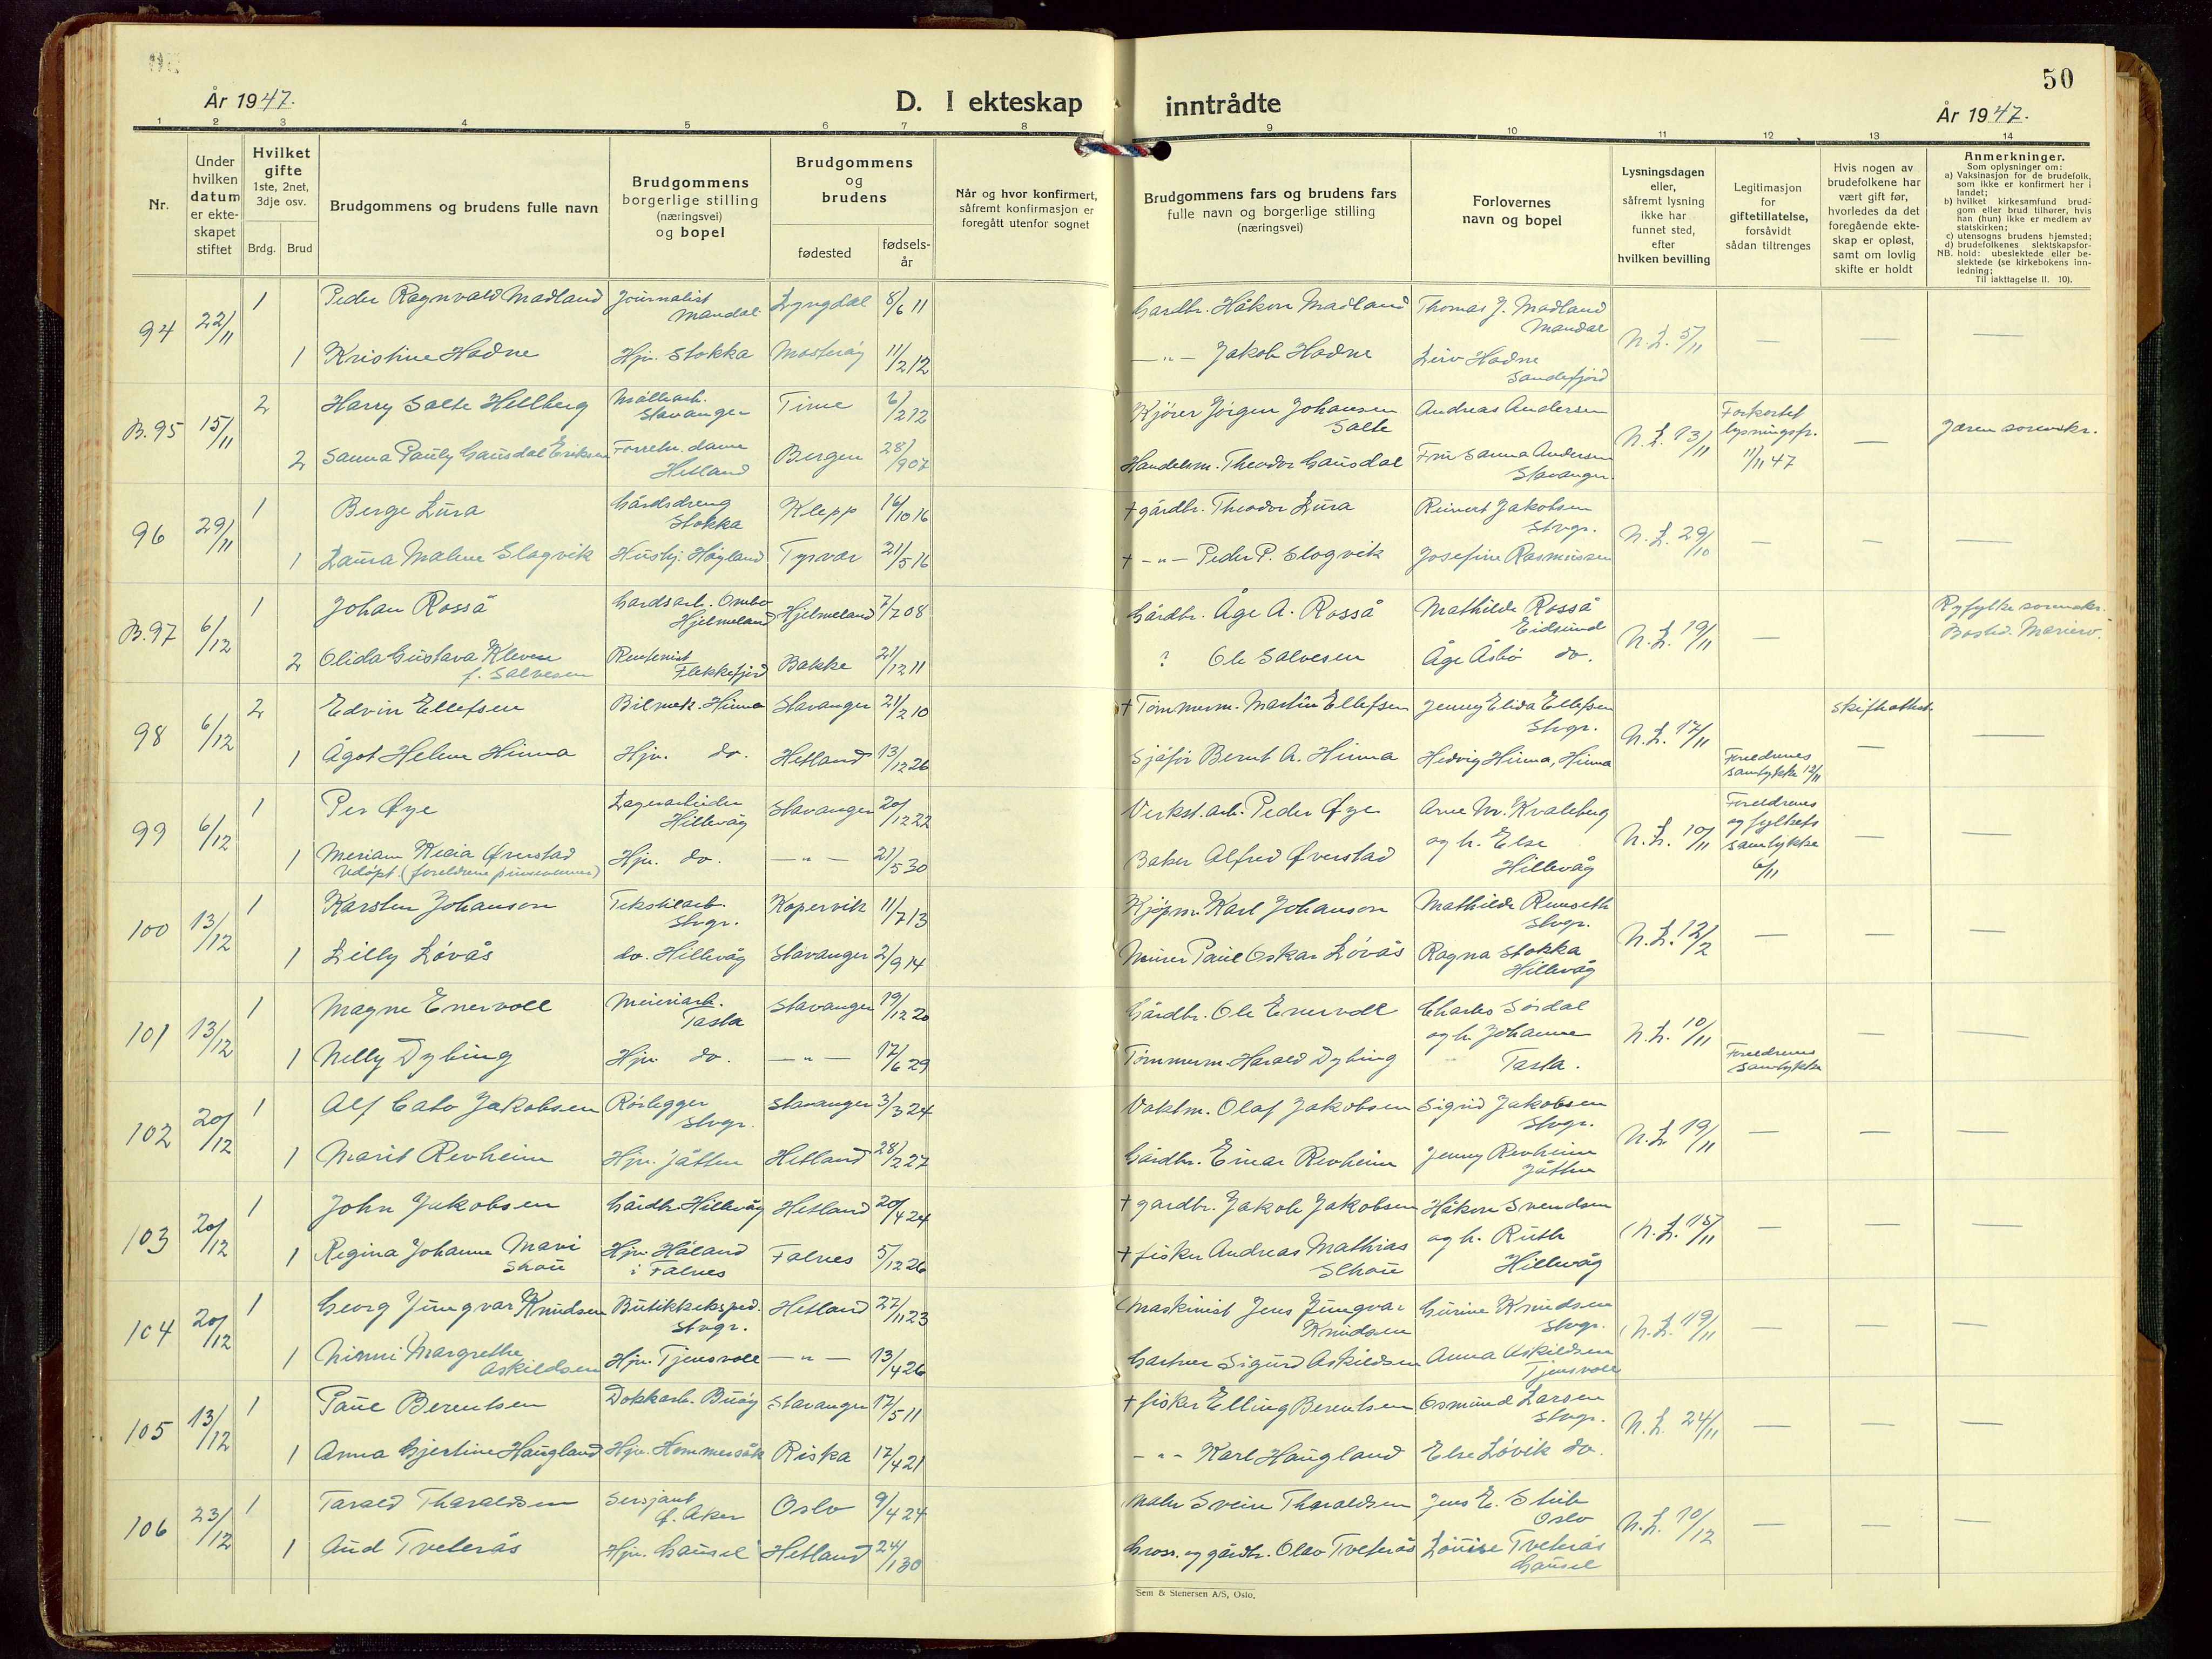 50
År 1947.
D. I ekteskap inntrådte
År 1947.
1 2 3 4 5 6 7 8 9 10 11 12 13 14
Nr.
Under hvilken datum er ekteskapet stiftet
Hvilket gifte
1ste, 2net, 3dje osv.
Brdg. Brud
Brudgommens og brudens fulle navn
Brudgommens borgerlige stilling (næringsvei) og bopel
Brudgommens og brudens
fødested
fødselsår
Når og hvor konfirmert, såfremt konfirmasjon er foregått utenfor sognet
Brudgommens fars og brudens fars fulle navn og borgerlige stilling (næringsvei)
Forlovernes navn og bopel
Lysningsdagen eller, såfremt lysning ikke har funnet sted, efter hvilken bevilling
Legitimasjon for giftetillatelse, forsåvidt sådan tiltrenges
Hvis nogen av brudefolkene har vært gift før, hvorledes da det foregående ekteskap er opløst, samt om lovlig skifte er holdt
Anmerkninger.
Som oplysninger om:
a) Vaksinasjon for de brudefolk, som ikke er konfirmert her i landet;
b) hvilket kirkesamfund brudgom eller brud tilhører, hvis han (hun) ikke er medlem av statskirken;
c) utensogns brudens hjemsted;
d) brudefolkenes slektskapsforhold: ubeslektede eller beslektede (se kirkebokens innledning;
NB.
Til iakttagelse II. 10).
94 22/11 1 Peder Ragnvald Madland Journalist Mandal Lyngdal 8/6 11 Gardbr. Håkon Madland Thomas J. Madland Mandal N.L. 5/11 — — —
1 Kristine Hadne Hjv. Stokka Mosterøy 11/2 12 — " — Jakob Hadne Hadne Sandefjord
B.95 15/11 2 Harry Salte Hellberg Stavanger Time 6/2 12 Kjører Jørgen Johansen Salte Andreas Andersen N.L. 13/11 Forkortet lysningsfr. 11/11 47 — Jæren sorenskr.
2 Sanna Pauly Gausdal Eriksen Forretn. dame Hetland Bergen 28/9 07 Handelsm. Theodor Gausdal Fru Sanna Andersen Stavanger
96 29/11 1 Berge Lura Gårdsdreng Stokka Klepp 16/10 16 † gårdbr. Theodor Lura Reinert Jakobsen Stvgr. N.L. 29/10 — — —
1 Laura Malene Slogvik Hushj. Høgland Tysvær 21/5 16 † — " — Peder P. Slogvik Josefine Rasmussen
B.97 6/12 1 Johan Rosså Gardsarb. Ombo Hjelmeland Hjelmeland 7/7 08 Gårdbr. Åge A. Rosså Mathilde Rosså Eidsund N.L. 19/11 — Ryfylke sorenskr.
2 Olida Gustava Kleven f. Salvesen Rentenist Flekkefjord Bakke 21/12 11 ? Ole Salvesen Åge Åsbø do.
98 6/12 2 Edvin Ellefsen Bilmek. Hinna Stavanger 21/2 10 † Tømmerm. Martin Ellefsen Jenny Elida Ellefsen Stvgr. N.L. 17/11 Skifteattest.
1 Ågot Helene Hinna Hjv. do. Hetland 13/12 26 Sjåfør Bernt A. Hinna Hedvig Hinna, Hinna Foreldrenes samtykke 12/11 — —
99 6/12 1 Per Øye Lagerarbeider Hillevåg Stavanger 20/12 22 Verkst.arb. Peder Øye Arne M. Kvaleberg og h. Else Hillevåg N.L. 10/11 Foreldrenes og fylkets samtykke 6/11 — —
1 Meriam Øverstad Udøpt. (foreldrene pinsevenner) Hjv. do. — " — 21/5 30 Baker Alfred Øverstad
100 13/12 1 Karsten Johanson Tekstilarb. Stvgr. Kopervik 11/7 13 Kjøpm. Karl Johanson Mathilde Stvgr. N.L. 12/2 — — —
1 Lilly Løvås do. Hillevåg Stavanger 2/9 14 Murer Paul Oskar Løvås Ragna Stokka Hillevåg
101 13/12 1 Magne Enervoll Meieriarb. Tasta Stavanger 19/12 20 Gårdbr. Ole Enervoll Charles Sørdal og h. Johanne Tasta. N.L. 10/11 Foreldrenes samtykke — —
1 Nelly Dybing Hjv. do. — " — 17/6 29 Tømmerm. Harald Dybing
102 20/12 1 Alf Cato Jakobsen Rørlegger Stvgr. Stavanger 3/3 24 Vaktm. Olaf Jakobsen Sigrid Jakobsen Stvgr. N.L. 19/11 — — —
1 Marit Revheim Hjv. Jåtten Hetland 28/2 27 Gårdbr. Einar Revheim Jenny Revheim Jåtten
103 20/12 1 John Jakobsen Gårdbr. Hillevåg Hetland 20/4 24 † gardbr. Jakob Jakobsen Håkon Svendsen og h. Ruth Hillevåg N.L. 15/11 — — —
1 Regina Johanne Mari Skau Hjv. Håland i Falnes Falnes 5/12 26 † fisker Andreas Mathias Schau
104 20/12 1 Georg Jungvar Knudsen Butikkeksped. Stvgr. Hetland 27/11 23 Maskinist Jens Jungvar Knudsen Gurine Knudsen Stvgr. N.L. 19/11 — — —
1 Mimmi Margrethe Askildsen Hjv. Tjensvoll — " — 13/4 26 Gartner Sigurd Askildsen Anna Askildsen Tjensvoll
105 13/12 1 Paul Berentsen Dokkarb. Buøy Stavanger 17/5 11 † fisker Elling Berentsen Osmund Larsen Stvgr. N.L. 24/11 — — —
1 Anna Gjertine Haugland Hjv. Hommersåk Riska 17/4 21 — " — Karl Haugland Else Løvik do.
106 23/12 1 Tarald Tharaldsen Sersjant f. Aker Oslo 9/4 24 Maler Svein Tharaldsen Jens E. Oslo N.L. 10/12 — — —
1 Aud Tveterås Hjv. Gausel Hetland 24/1 30 Gross. og gårdbr. Olav Tveterås Louise Tveterås Gausel
Sem & Stenersen A/S, Oslo.